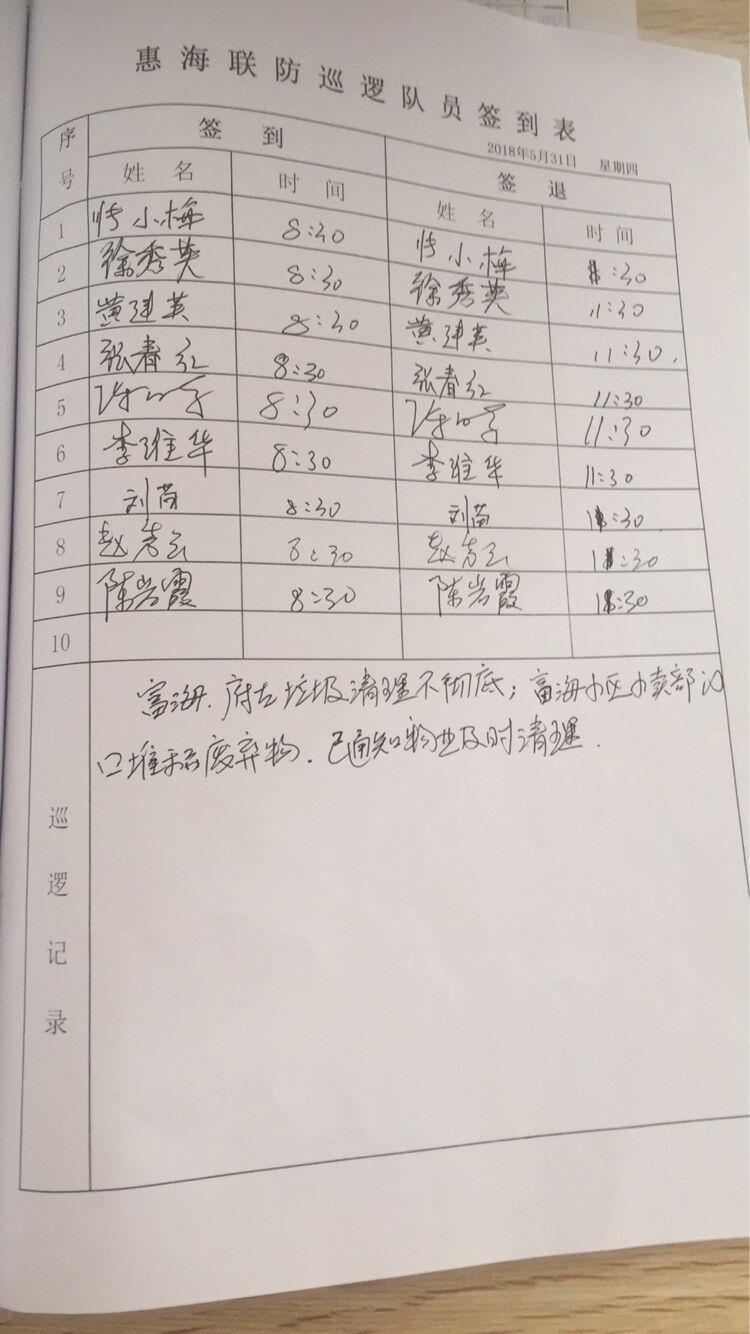 惠海联防巡逻队员签到表
2018年5月31日 星期四
序号 签到 签退
姓名 时间 姓名 时间
1 小梅 8:30 小梅 :30
2 徐秀英 8:30 徐秀英 11:30
3 黄建英 8:30 黄建英 11:30.
4 张春红 8:30 张春红 11:30
5 8:30 11:30
6 李维华 8:30 李维华 11:30
7 刘苗 8:30 刘苗 11:30
8 赵芳云 8:30 赵芳云 11:30
9 陈岩霞 8:30 陈岩霞 11:30
10
巡逻记录
富海、府左垃圾清理不彻底；富海小区小卖部门
口堆积废弃物．已通知物业及时清理．